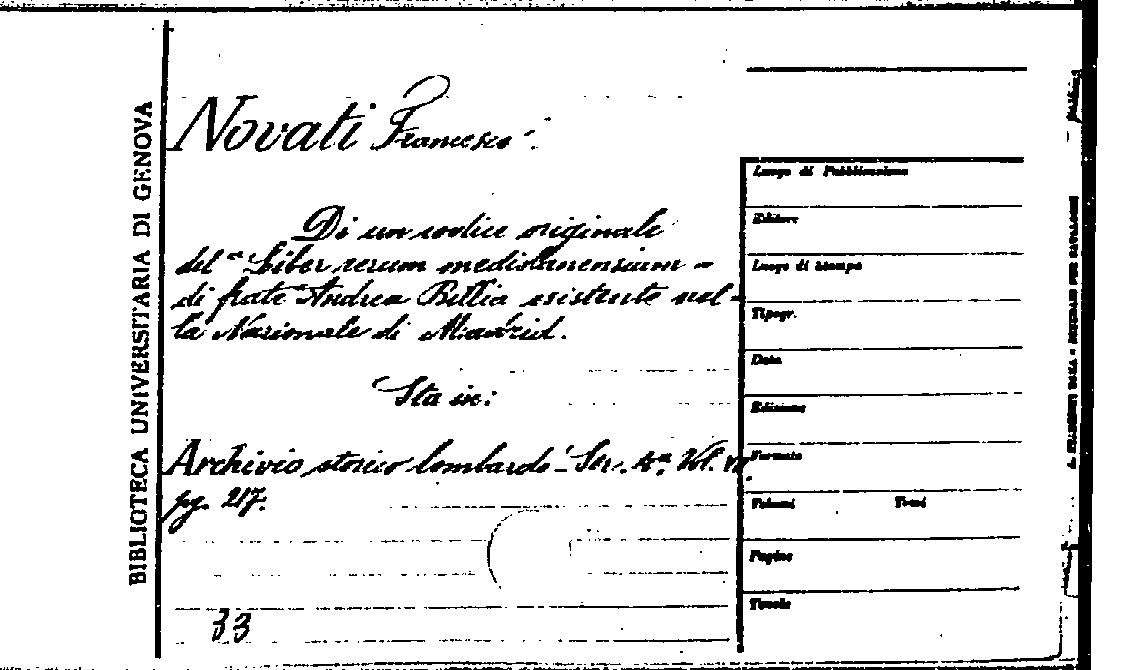 BIBLIOTECA UNIVERSITARIA DI GENOVA
Novati Francesco.
Di un codice originale
del "Liber rerum mediolanensium -
di frate Andrea Billia esistente nel-
la Nazionale di Madrid.
Sta in:
Archivio storico lombardo - Ser. 4a. Vol.
pg. 217.
33
Luogo di Pubblicazione
Editore
Luogo di stampa
Tipogr.
Data
Edizione
Formato
Volumi Tomi
Pagine
Tavole